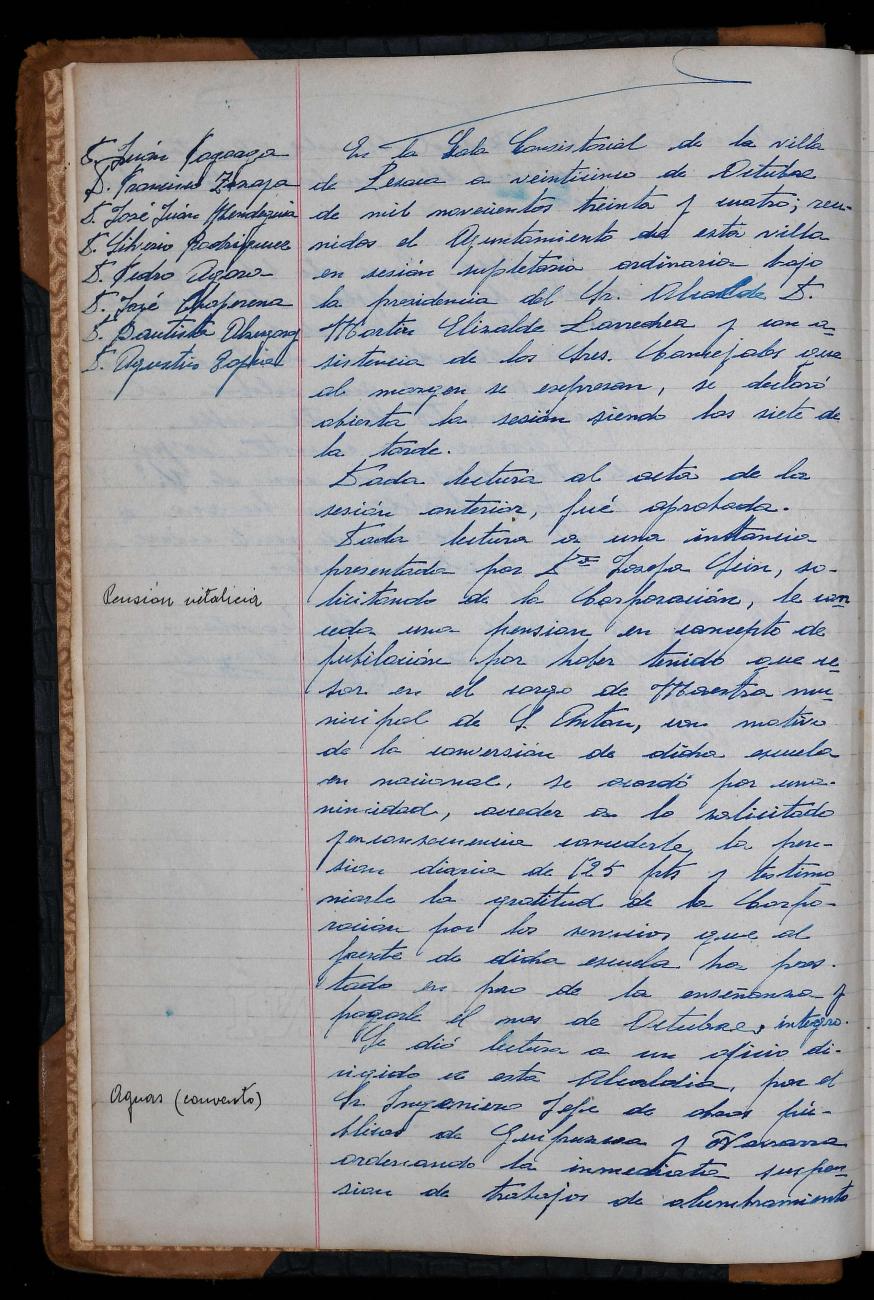 D. Juán
D. Francisco
D. José Juán Mendeguia
D. Silverio Rodriguez
D. Pedro
D. José Choperena
D. Bautista
D. Agustin Tapia
En la Sala Consistorial de la villa
de Lesaca a veinticinco de Octubre
de mil novecientos treinta y cuatro; reu-
nidos el Ayuntamiento de esta villa
en sesión supletoria ordinaria bajo
la presidencia del Sr. Alcalde D.
Martin Elizalde Larrechea y con a-
sistencia de los Sres. Concejales que
al margen se expresan, se declaró
abierta la sesión siendo las siete de
la tarde.
Dada lectura al acta de la
sesión anterior, fué aprobada.
Dada lectura a una instancia
presentada por Dª Josefa Gein, so-
Pensión vitalicia
licitando de la Corporación, le con
ceda una pension en concepto de
jubilación por haber tenido que ce-
sar en el cargo de Maestra mu-
nicipal de S. Anton, con motivo
de la conversión de dicha escuela
en nacional, se acordó por una-
nimidad, acceder a lo solicitado
concederle, la pen-
sion diaria de 1'25 pts y testimo
niarle la gratitud de la Corpo-
ración por los servicios que al
frente de dicha escuela ha pres-
tado en pro de la enseñanza y
pagarle el mes de Octubre, integro.
Se dió lectura a un oficio di-
rigido a esta Alcaldia, por el
Aguas (convento)
Sr. Ingeniero Jefe de obras pú-
blicas de Guipuzcoa y Navarra
ordenando la inmediata suspen-
sion de trabajos de alumbramiento